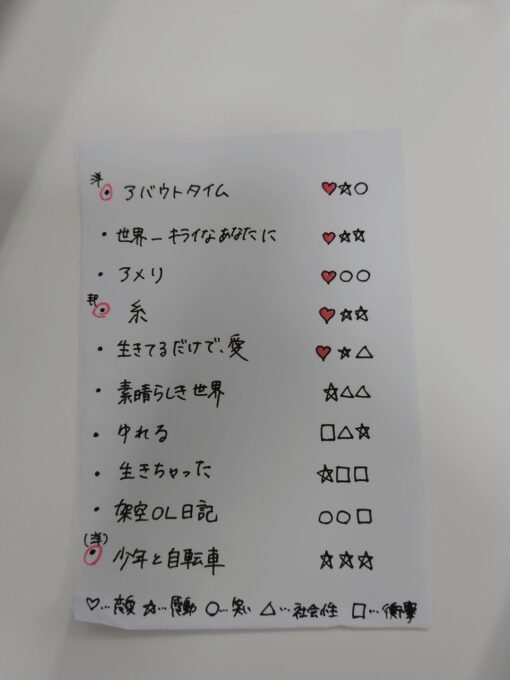 洋
・アバウトタイム ♥☆○
・世界一キライなあなたに ♥☆☆
・アメリ ♥○○
邦
・糸 ♥☆☆
・生きてるだけで、愛 ♥☆△
・素晴らしき世界 ☆△△
・ゆれる □△☆
・生きちゃった ☆□□
・架空OL日記 ○○□
(洋)
・少年と自転車 ☆☆☆
♡…恋愛 ☆…感動 ○…笑い △…社会性 □…衝撃